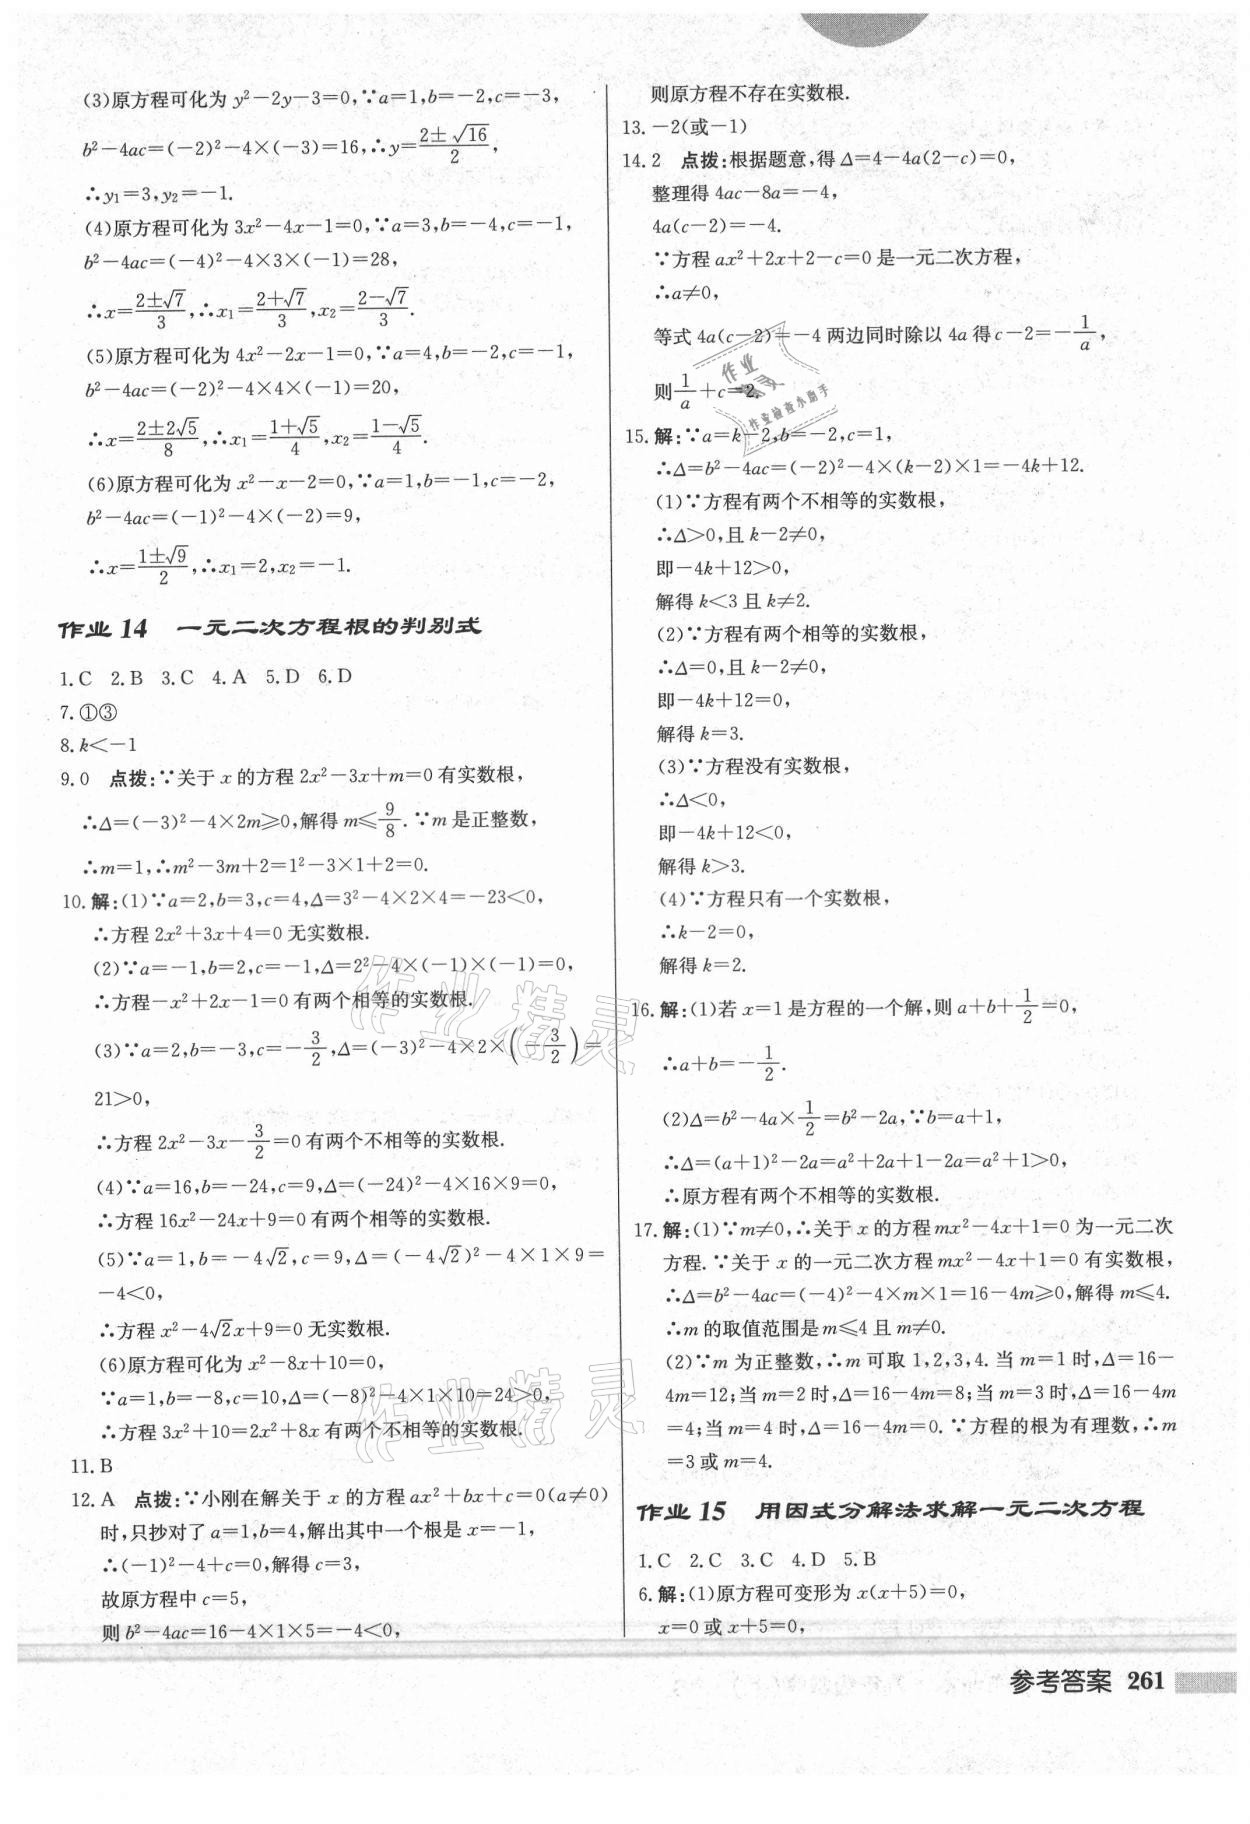 (3)原方程可化为 y²-2y-3=0,∵a=1,b=-2,c=-3,
b²-4ac=(-2)²-4×(-3)=16,∴y=(2±√16)/2,
∴y₁=3,y₂=-1.
(4)原方程可化为 3x²-4x-1=0,∵a=3,b=-4,c=-1,
b²-4ac=(-4)²-4×3×(-1)=28,
∴x=(2±√7)/3,∴x₁=(2+√7)/3,x₂=(2-√7)/3.
(5)原方程可化为 4x²-2x-1=0,∵a=4,b=-2,c=-1,
b²-4ac=(-2)²-4×4×(-1)=20,
∴x=(2±2√5)/8,∴x₁=(1+√5)/4,x₂=(1-√5)/4.
(6)原方程可化为 x²-x-2=0,∵a=1,b=-1,c=-2,
b²-4ac=(-1)²-4×(-2)=9,
∴x=(1±√9)/2,∴x₁=2,x₂=-1.
作业 14 一元二次方程根的判别式
1.C 2.B 3.C 4.A 5.D 6.D
7.①③
8.k<-1
9.0 点拨:∵关于 x 的方程 2x²-3x+m=0 有实数根,
∴Δ=(-3)²-4×2m≥0,解得 m≤9/8.∵m 是正整数,
∴m=1,∴m²-3m+2=1²-3×1+2=0.
10.解:(1)∵a=2,b=3,c=4,Δ=3²-4×2×4=-23<0,
∴方程 2x²+3x+4=0 无实数根.
(2)∵a=-1,b=2,c=-1,Δ=2²-4×(-1)×(-1)=0,
∴方程-x²+2x-1=0 有两个相等的实数根.
(3)∵a=2,b=-3,c=-3/2,Δ=(-3)²-4×2×(-3/2)=
21>0,
∴方程 2x²-3x-3/2=0 有两个不相等的实数根.
(4)∵a=16,b=-24,c=9,Δ=(-24)²-4×16×9=0,
∴方程 16x²-24x+9=0 有两个相等的实数根.
(5)∵a=1,b=-4√2,c=9,Δ=(-4√2)²-4×1×9=
-4<0,
∴方程 x²-4√2x+9=0 无实数根.
(6)原方程可化为 x²-8x+10=0,
∵a=1,b=-8,c=10,Δ=(-8)²-4×1×10=24>0,
∴方程 3x²+10=2x²+8x 有两个不相等的实数根.
11.B
12.A 点拨:∵小刚在解关于 x 的方程 ax²+bx+c=0(a≠0)
时,只抄对了 a=1,b=4,解出其中一个根是 x=-1,
∴(-1)²-4+c=0,解得 c=3,
故原方程中 c=5,
则 b²-4ac=16-4×1×5=-4<0,
则原方程不存在实数根.
13.-2(或-1)
14.2 点拨:根据题意,得 Δ=4-4a(2-c)=0,
整理得 4ac-8a=-4,
4a(c-2)=-4.
∵方程 ax²+2x+2-c=0 是一元二次方程,
∴a≠0,
等式 4a(c-2)=-4 两边同时除以 4a 得 c-2=-1/a,
则1/a+c=2.
15.解:∵a=k-2,b=-2,c=1,
∴Δ=b²-4ac=(-2)²-4×(k-2)×1=-4k+12.
(1)∵方程有两个不相等的实数根,
∴Δ>0,且 k-2≠0,
即-4k+12>0,
解得 k<3 且 k≠2.
(2)∵方程有两个相等的实数根,
∴Δ=0,且 k-2≠0,
即-4k+12=0,
解得 k=3.
(3)∵方程没有实数根,
∴Δ<0,
即-4k+12<0,
解得 k>3.
(4)∵方程只有一个实数根,
∴k-2=0,
解得 k=2.
16.解:(1)若 x=1 是方程的一个解,则 a+b+1/2=0,
∴a+b=-1/2.
(2)Δ=b²-4a×1/2=b²-2a,∵b=a+1,
∴Δ=(a+1)²-2a=a²+2a+1-2a=a²+1>0,
∴原方程有两个不相等的实数根.
17.解:(1)∵m≠0,∴关于 x 的方程 mx²-4x+1=0 为一元二次
方程.∵关于 x 的一元二次方程 mx²-4x+1=0 有实数根,
∴Δ=b²-4ac=(-4)²-4×m×1=16-4m≥0,解得 m≤4.
∴m 的取值范围是 m≤4 且 m≠0.
(2)∵m 为正整数,∴m 可取 1,2,3,4.当 m=1 时,Δ=16-
4m=12;当 m=2 时,Δ=16-4m=8;当 m=3 时,Δ=16-4m
=4;当 m=4 时,Δ=16-4m=0.∵方程的根为有理数,∴m
=3 或 m=4.
作业 15 用因式分解法求解一元二次方程
1.C 2.C 3.C 4.D 5.B
6.解:(1)原方程可变形为 x(x+5)=0,
x=0 或 x+5=0,
参考答案 261
作业精灵
作业精灵
作业
精灵
作业检查小助手